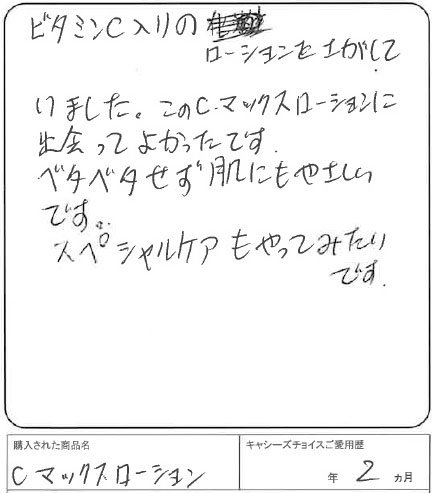 ビタミンC入りの
ローションをさがして
いました。このC.マックスローションに
出会ってよかったです.
ベタベタせず肌にもやさしい
です。
スペシャルケアもやってみたい
です.
購入された商品名
キャシーズチョイスご愛用歴
Cマックスローション
年 2 ヵ月